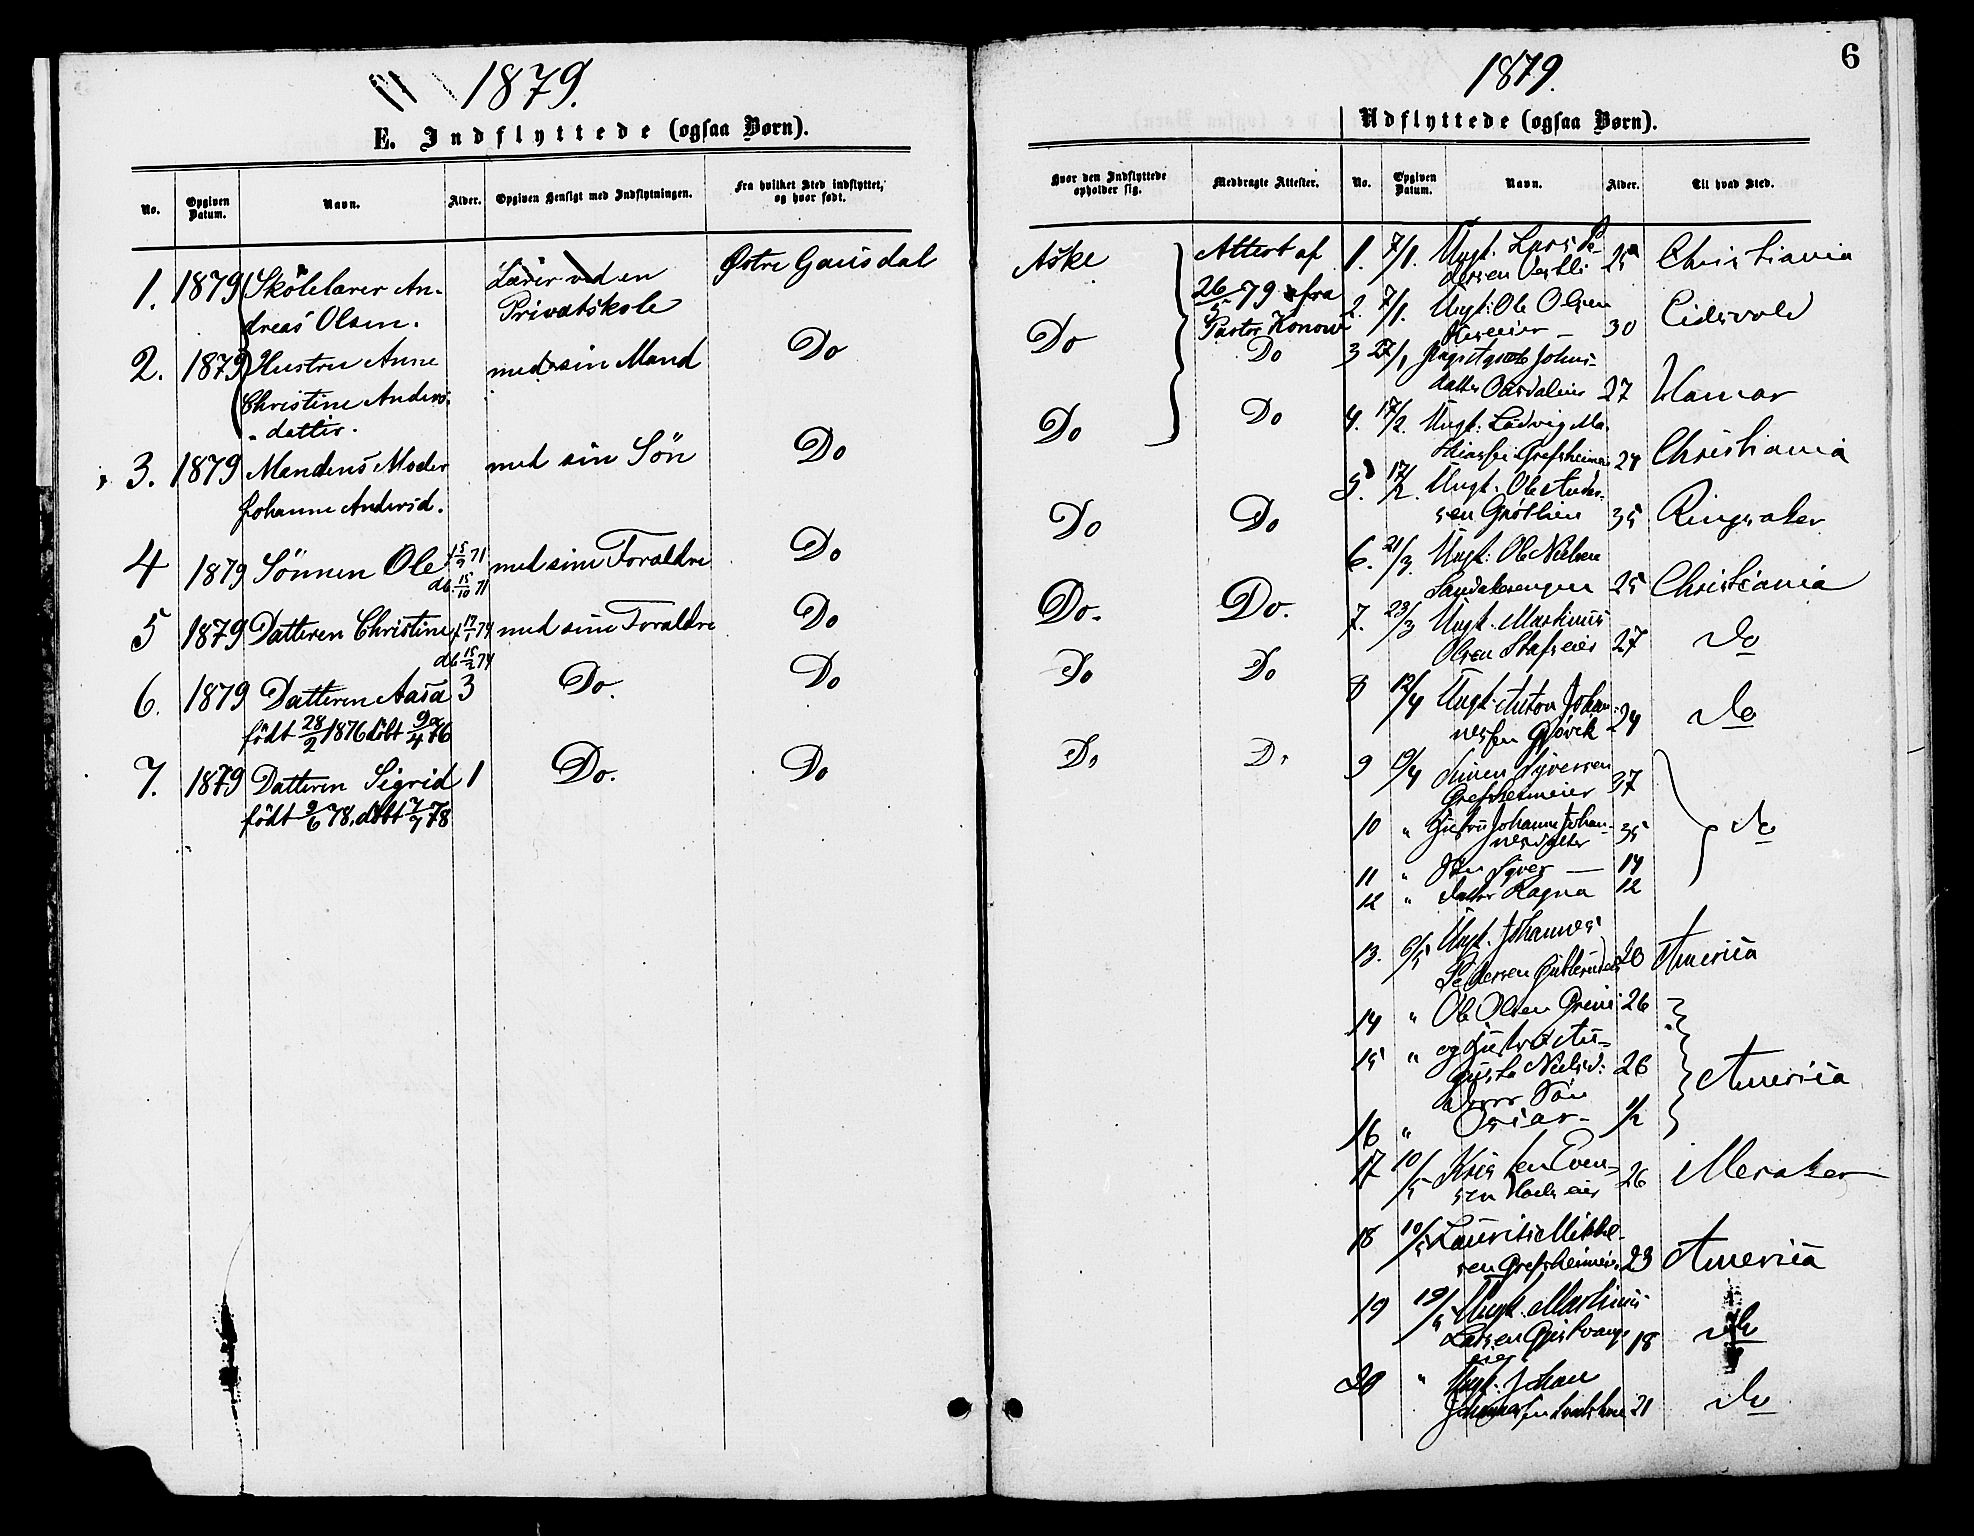 1879.
E. Indflyttede (ogsaa Børn).
No.
Opgiven Datum.
Navn.
Alder.
Opgiven Hensigt med Indflytningen.
Fra hvilket Sted indflyttet,
og hvor født.
1. 1879 Skolelærer An- Lærer ved en Østre Gausdal
dreas Olsen. Privatskole
2. 1879 Hustru Anne med sin Mand Do
Christine Anders-
datter.
3. 1879 Mandens Moder med sin Sön Do
Johanne Andersd.
4 1879 Sönnen Ole f 5/9 71 med sine Foraldre Do
db. 15/10 71
5 1879 Datteren Christine f 17/1 74 med sine Foraldre Do
db 15/2 74
6. 1879 Datteren Aasa 3 Do. Do
födt 28/2 1876 döbt 9/4 76
7. 1879 Datteren Sigrid 1 Do. Do
födt 9/6 78, döbt 7/7 78
6
1879.
Udflyttede (ogsaa Børn).
Hvor den Indflyttede
opholder sig.
Medbragte Attester.
No.
Opgiven
Datum.
Navn.
Alder.
Til hvad Sted.
Aske Attest af
26/5 79 fra
Pastor Konow
Do Do
Do Do
Do Do
Do. Do.
Do Do
Do Do
1. 7/1. Ungk. Lars Pe-
dersen Vestli 25 Christiania
2. 7/1. Ungk: Ole Olsen
30 Eidsvold
3 27/1 Johns-
datter 27 Hamar
4. 17/2. Ungk: Ludvig Ma-
thiassen Grefsheimeie 24 Christiania
5. 17/2. Ungk. Ole Anders-
sen 35 Ringsaker
6. 21/3. Ungk: Ole Nielsen
Sandakerengen 25 Christiania
7. 23/3 Ungk. Martinus
Olsen Stafseie 27 do
8 12/4 Ungk. Anton Johan-
nessen Gjøvik 24 do
9 19/4 Simen Syversen
Grefsheimeier 37
10 " Hustru Johanne Johan-
nesdatter 35 do
11 " Sön Syver — 14
12 " datter Ragna 12
13. 6/5 Ungk. Johannes
Pedersen 20 America
14 " Ole Olsen 26
15 " og Hustru Au-
gusta Nielsd: 26 America
Deres Sön
16 " Oscar - 1/2
17 10/5 Even-
sen 26 Meraker
18 10/5 Laurits Mikkel-
sen Grefsheimeie 23 America
19 19/5 Ungk. Martinus
Larsen Gjestvang- 18 do
eie
20 " Ungk. Johan
21 do